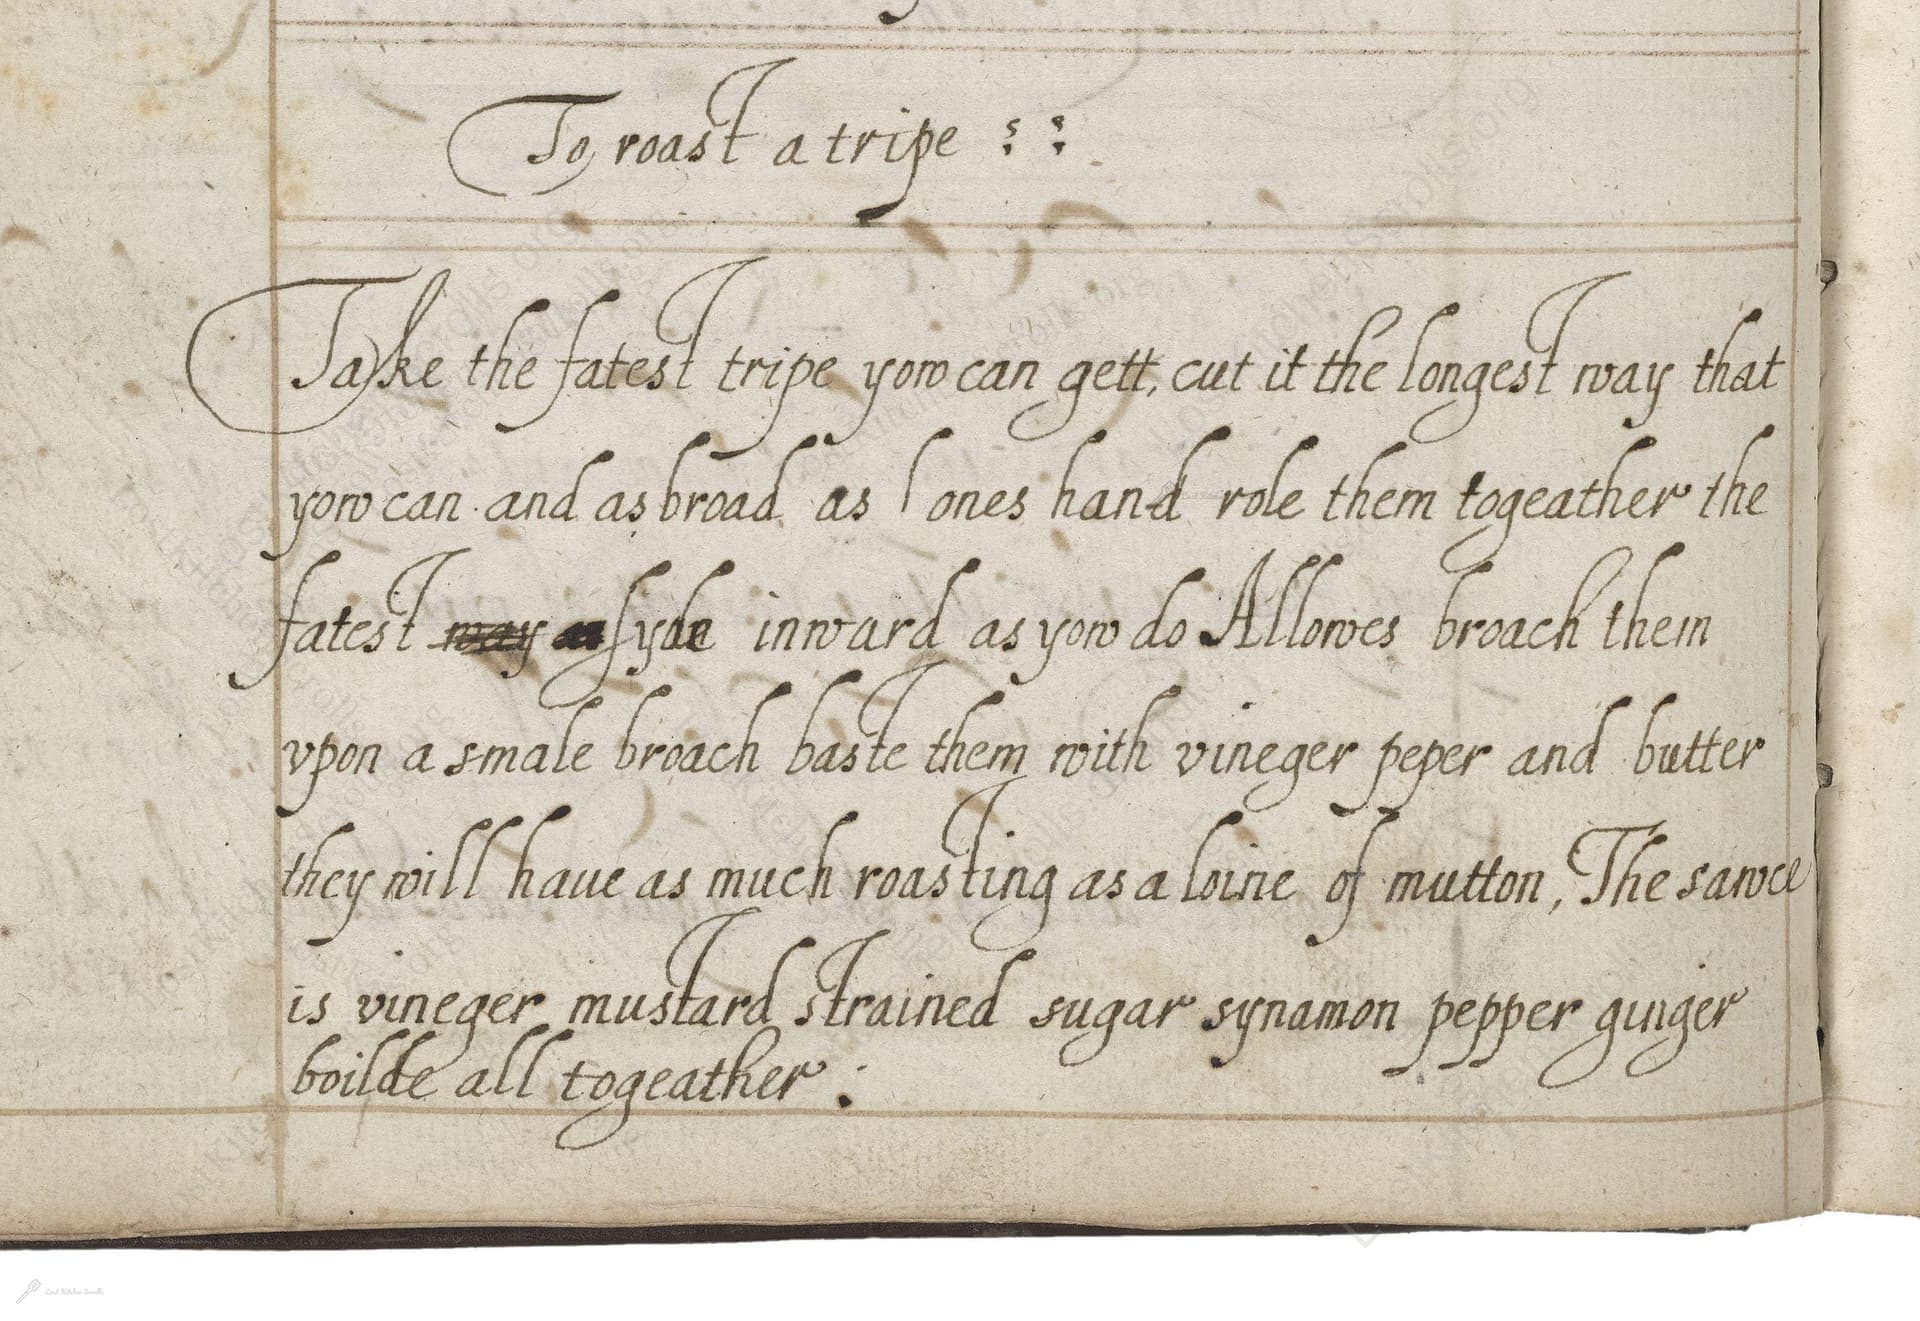 To roast a tripe
Take the fatest tripe yow can gett, cut it the longest way that
yow can and as broad as ones hand role them togeather the
fatest way syde inward as yow do Allowes broach them
vpon a smale broach baste them with vineger peper and butter
they will haue as much roasting as a loine of mutton, The sawce
is vineger mustard strained sugar synamon pepper ginger
boilde all togeather :
Lost Kitchen Scrolls